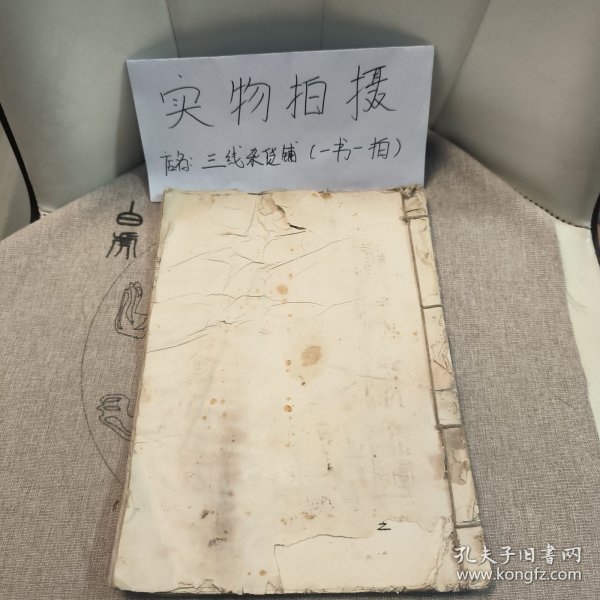 实物拍摄
店名: 三线杂货铺 (一书一拍)
白虎
之
孔夫子旧书网
www.kongfz.com